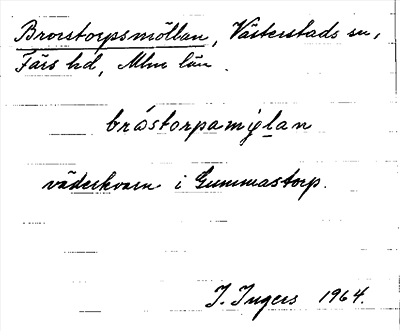 Brorstorpsmöllan, Västerstads sn,
Färs hd, Mlm län.
bråstorpamyl̲an
väderkvarn i Gummastorp.
I. Ingers 1964.